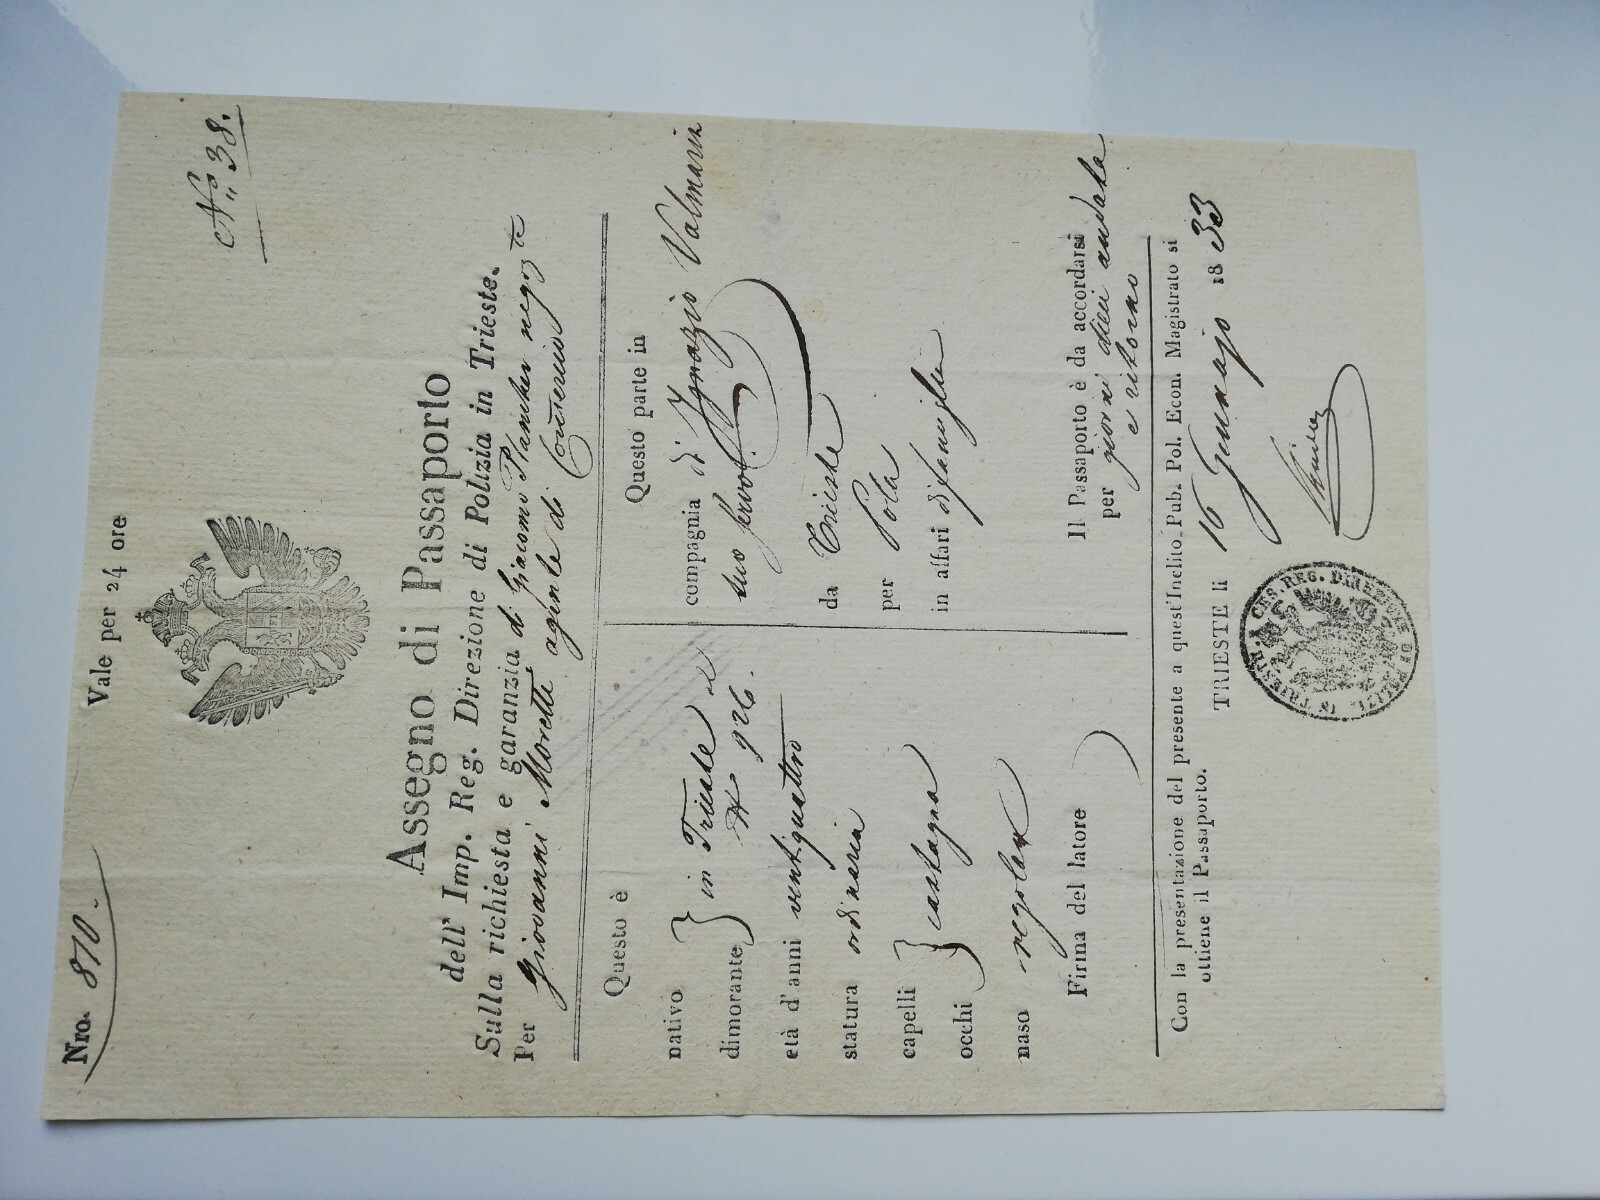 Nro. 870.
Vale per 24 ore
No 38.
Assegno di Passaporto
dell' Imp. Reg. Direzione di Polizia in Trieste.
Sulla richiesta e garanzia di Giacomo negozte
Per Giovanni Moretti agente di Comercio
Questo è
nativo
dimorante } in Trieste al
N 926.
età d'anni ventiquattro
statura ordinaria
capelli
occhi } castagna
naso regolar
Firma del latore
Questo parte in
compagnia di Ignazio Valmarin
suo servo.
da Trieste
per Pola
in affari di famiglia
Il Passaporto è da accordarsi
per giorni dieci andata
e ritorno
Con la presentazione del presente a quest'Inclito Pub. Pol. Econ. Magistrato si
ottiene il Passaporto.
TRIESTE li 16 Gennajo 1833
CES. REG. DIREZIONE DI POLIZI. IN TRIESTE